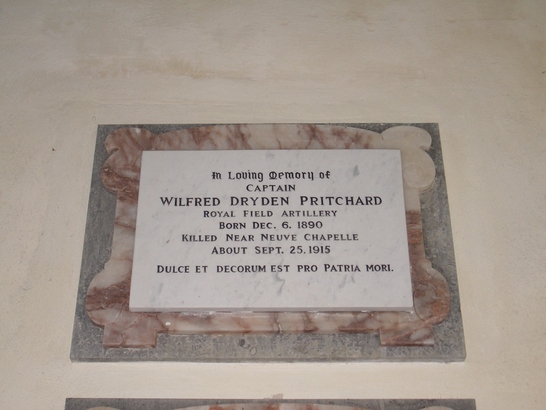 In Loving Memory of
CAPTAIN
WILFRED DRYDEN PRITCHARD
ROYAL FIELD ARTILLERY
BORN DEC. 6. 1890
KILLED NEAR NEUVE CHAPELLE
ABOUT SEPT. 25. 1915
DULCE ET DECORUM EST PRO PATRIA MORI.